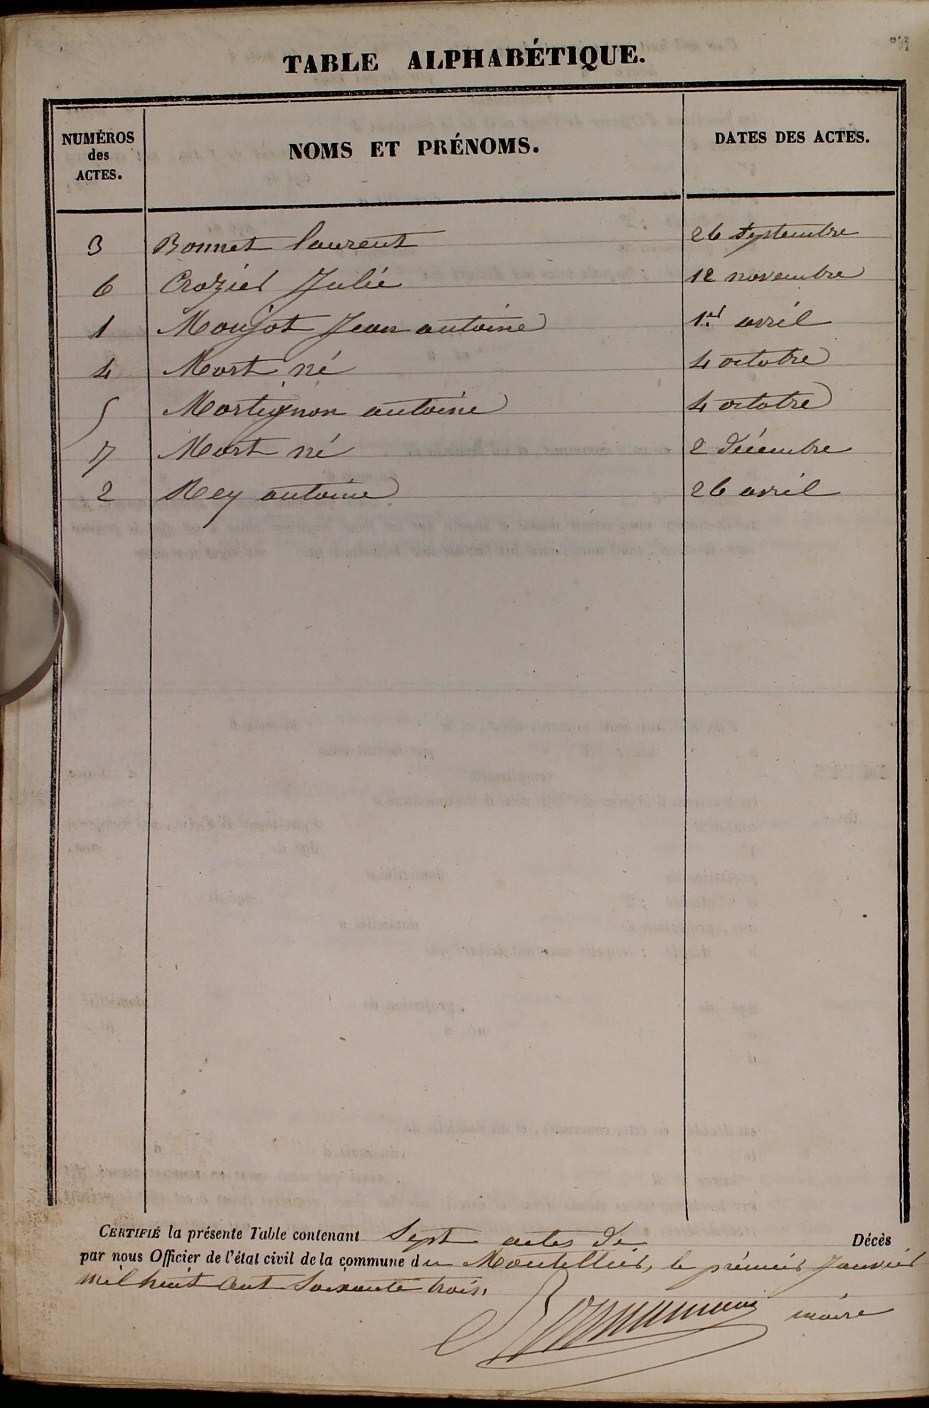 TABLE ALPHABÉTIQUE.
NUMÉROS des ACTES. NOMS ET PRÉNOMS. DATES DES ACTES.
3 Bonnet laurent 26 septembre
6 Crozier Julie 12 novembre
1 Moujot Jean antoine 1er avril
4 Mort né 4 octobre
5 Martignon antoine 4 octobre
7 Mort né 2 décembre
2 Rey antoine 26 avril
CERTIFIÉ la présente Table contenant Sept actes de Décès
par nous Officier de l'état civil de la commune du Montellier, le prémier Janvier
mil huit cent Soixante trois.
maire